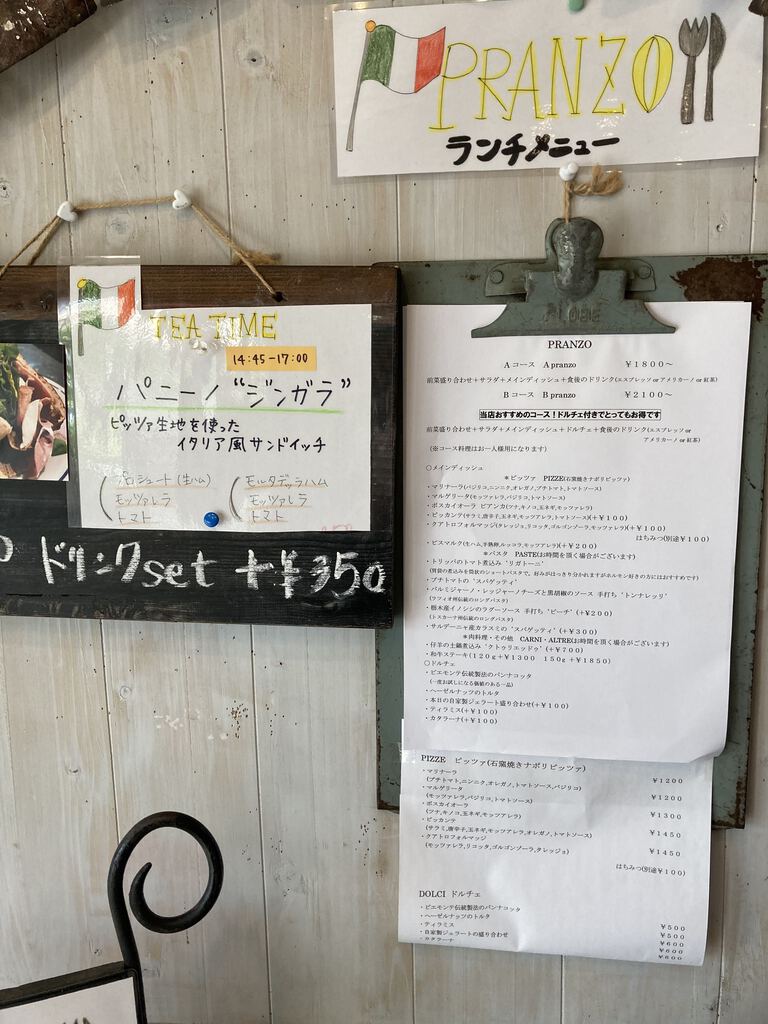 PRANZO
ランチメニュー
TEA TIME
14:45-17:00
パニーノ“ジンガラ”
ピッツァ生地を使った
イタリア風サンドイッチ
プロシュート(生ハム)
モッツァレラ
トマト
モルタデッラハム
モッツァレラ
トマト
ドリンクset +¥350
PRANZO
Aコース A pranzo ¥1800~
前菜盛り合わせ+サラダ+メインディッシュ+食後のドリンク(エスプレッソ or アメリカーノ or 紅茶)
Bコース B pranzo ¥2100~
当店おすすめのコース!ドルチェ付きでとってもお得です
前菜盛り合わせ+サラダ+メインディッシュ+ドルチェ+食後のドリンク(エスプレッソ or
アメリカーノ or 紅茶)
(※コース料理はお一人様用になります)
○メインディッシュ
*ピッツァ PIZZE(石窯焼きナポリピッツァ)
・マリナーラ(バジリコ,ニンニク,オレガノ,プチトマト,トマトソース)
・マルゲリータ(モッツァレラ,バジリコ,トマトソース)
・ボスカイオーラ ビアンカ(ツナ,キノコ,玉ネギ,モッツァレラ)
・ピッカンテ(サラミ,唐辛子,玉ネギ,モッツァレラ,トマトソース)(+¥100)
・クアトロフォルマッジ(タレッジョ,リコッタ,ゴルゴンゾーラ,モッツァレラ)(+¥100)
はちみつ(別途¥100)
・ビスマルク(生ハム,半熟卵,ルッコラ,モッツァレラ)(+¥200)
*パスタ PASTE(お時間を頂く場合がございます)
・トリッパのトマト煮込み ‘リガトーニ’
(胃袋の煮込みを筒状のショートパスタで。好みがはっきり分かれますがホルモン好きの方にはおすすめです)
・プチトマトの ‘スパゲッティ’
・パルミジャーノ・レッジャーノチーズと黒胡椒のソース 手打ち ‘トンナレッリ’
(ラツィオ州伝統のロングパスタ)
・栃木産イノシシのラグーソース 手打ち ‘ピーチ’ (+¥200)
(トスカーナ州伝統のロングパスタ)
・サルデーニャ産カラスミの ‘スパゲッティ’ (+¥300)
*肉料理・その他 CARNI・ALTRE(お時間を頂く場合がございます)
・仔羊の土鍋煮込み ‘クトゥリエッドゥ’ (+¥700)
・和牛ステーキ(120g+¥1300 150g+¥1850)
○ドルチェ
・ピエモンテ伝統製法のパンナコッタ
(一度お試しになる価値のある一品)
・ヘーゼルナッツのトルタ
・本日の自家製ジェラート盛り合わせ(+¥100)
・ティラミス(+¥100)
・カタラーナ(+¥100)
PIZZE ピッツァ(石窯焼きナポリピッツァ)
・マリナーラ ¥1200
(プチトマト,ニンニク,オレガノ,トマトソース,バジリコ)
・マルゲリータ ¥1200
(モッツァレラ,バジリコ,トマトソース)
・ボスカイオーラ ¥1300
(ツナ,キノコ,玉ネギ,モッツァレラ)
・ピッカンテ ¥1450
(サラミ,唐辛子,玉ネギ,モッツァレラ,オレガノ,トマトソース)
・クアトロフォルマッジ ¥1450
(モッツァレラ,リコッタ,ゴルゴンゾーラ,タレッジョ)
はちみつ(別途¥100)
DOLCI ドルチェ
・ピエモンテ伝統製法のパンナコッタ ¥500
・ヘーゼルナッツのトルタ ¥500
・ティラミス ¥600
・自家製ジェラートの盛り合わせ ¥600
・カタラーナ ¥600